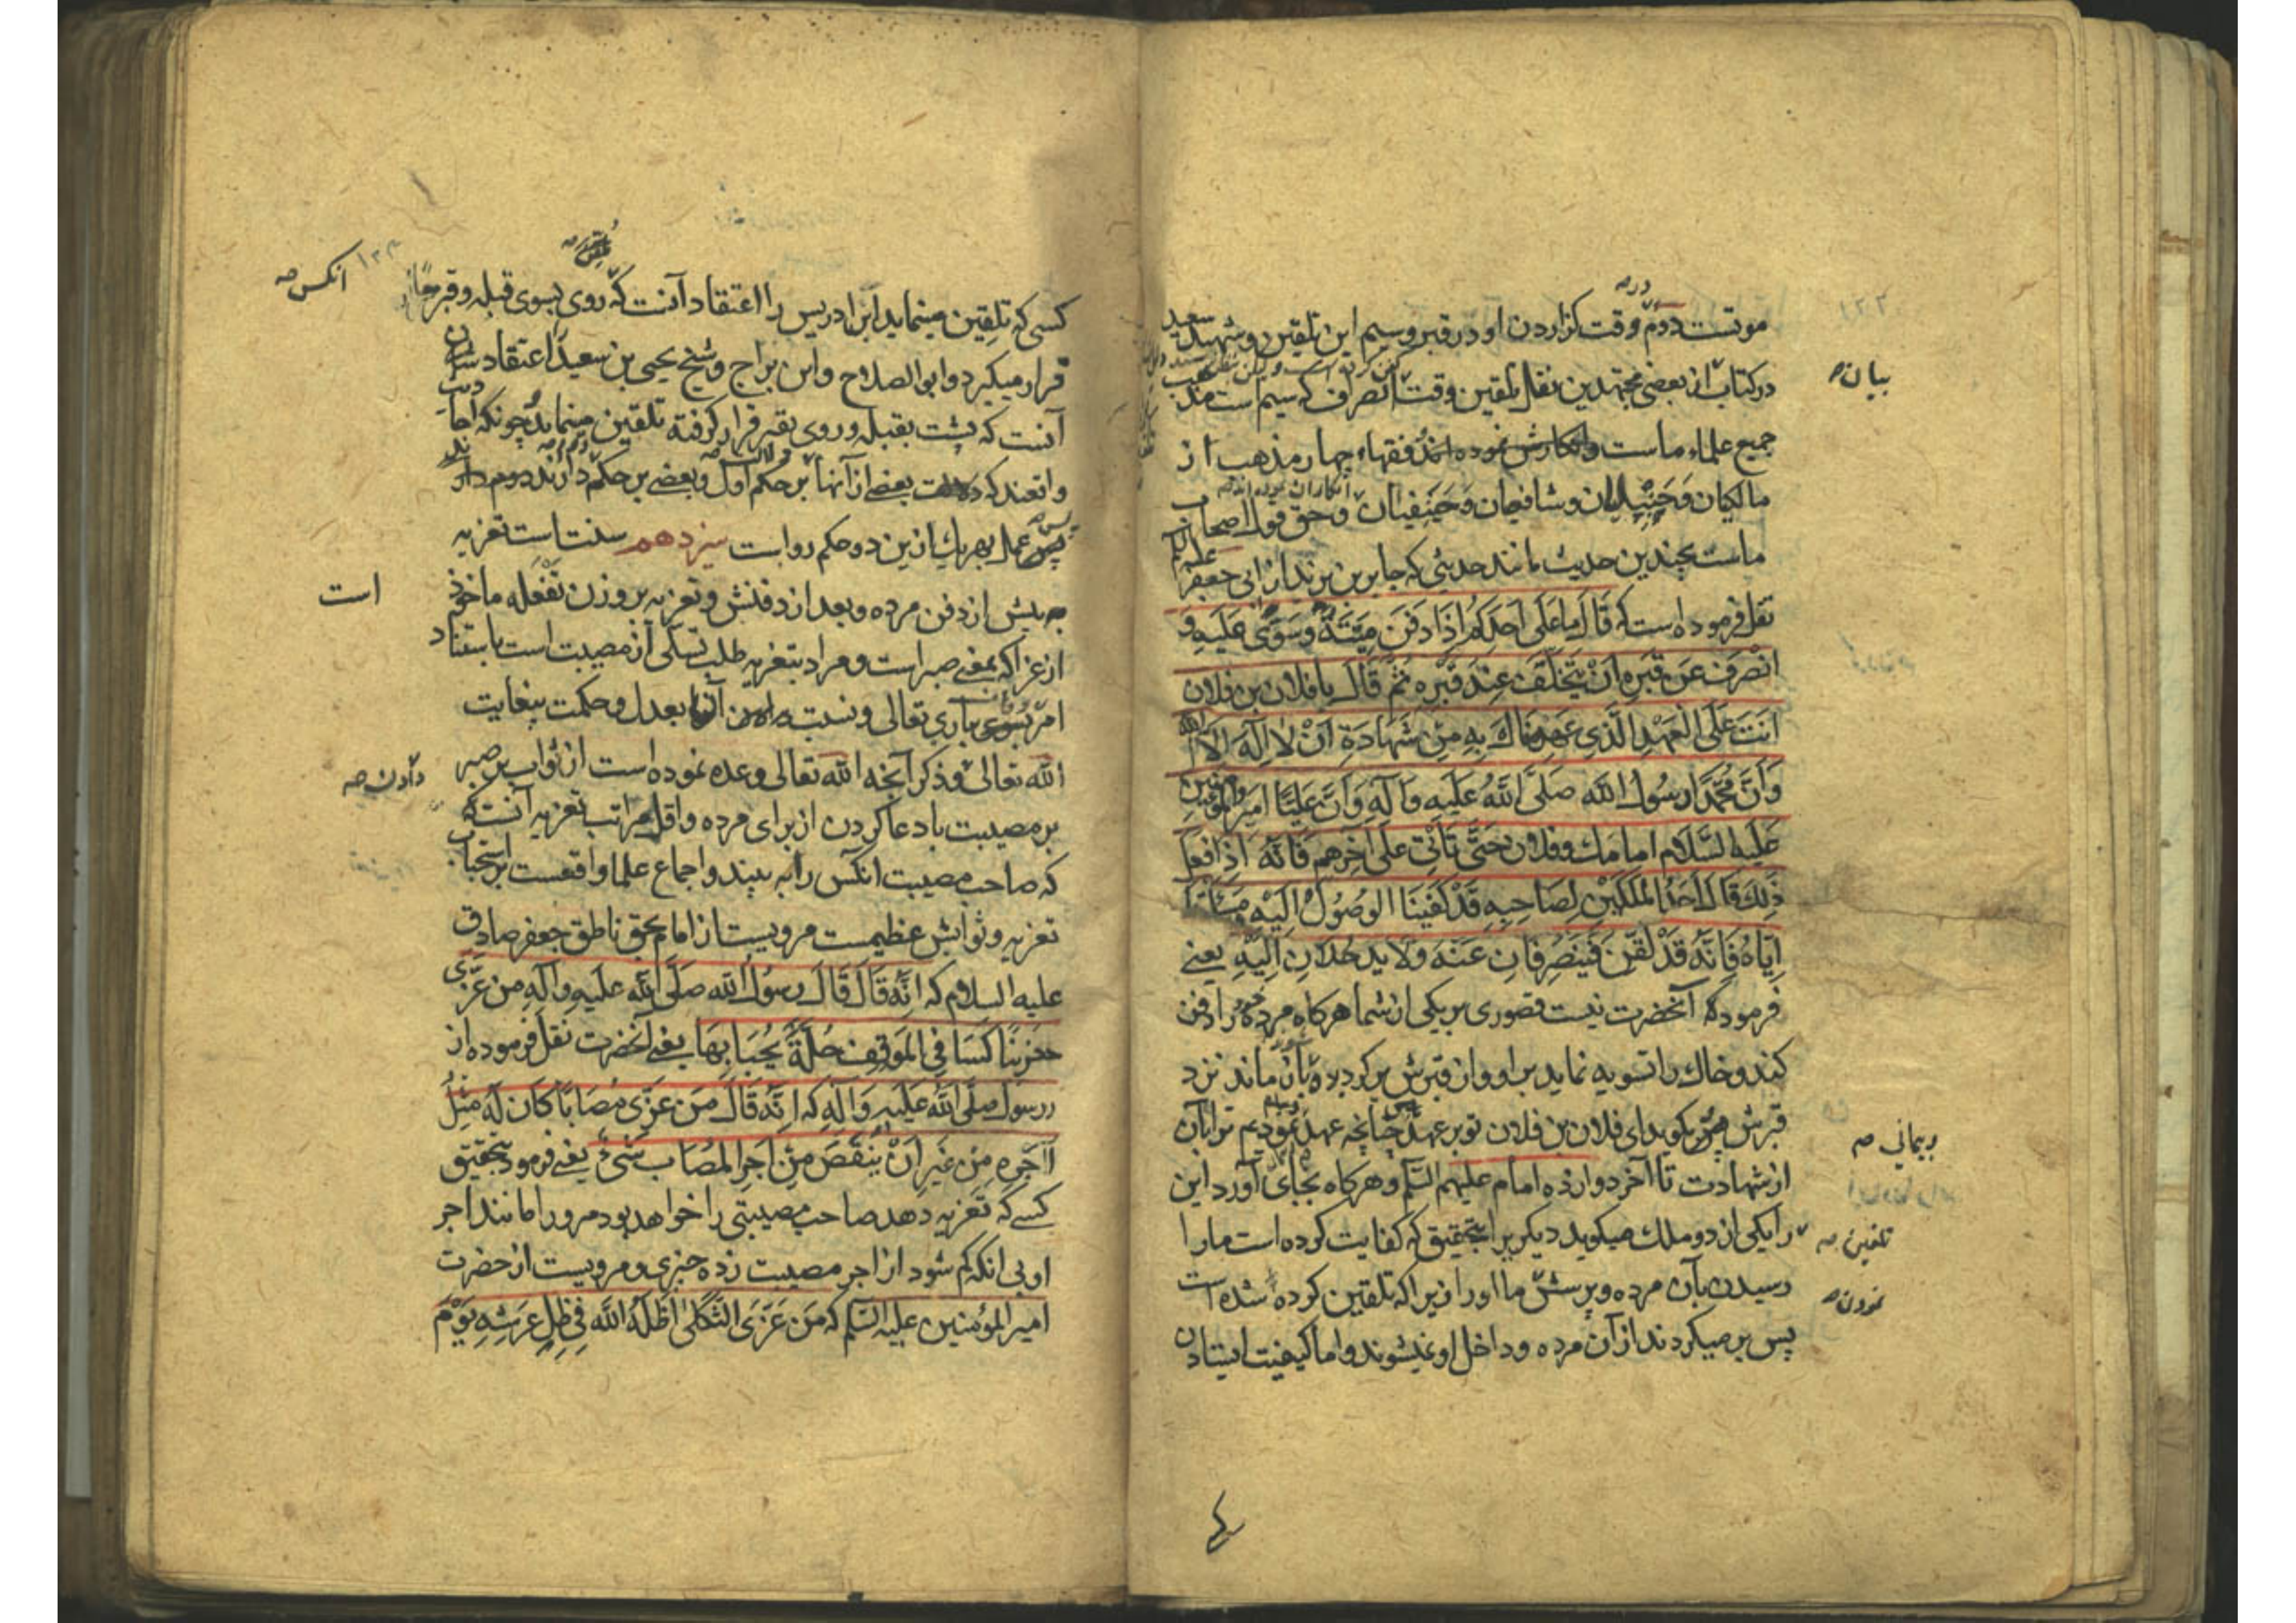 موتست دوم وقت گزاردن او در قبر و سیم این تلقین و شهید سعید
در کتاب بیان از بعضی مجتهدین نقل تلقین وقت انصرف که سیم است
جمیع علماء ماست نموده‌اند فقهاء چهار مذهب از
مالکیان و حنبلیان و شافعیان و حنیفیان و حق قول اصحاب
ماست بچندین حدیث مانند حدیثی که جابر بن یزید از ابی جعفر علیهم السلام
نقل فرموده است که قَالَ مَا عَلَی اَحَدِکُمْ اِذَا دَفَنَ مَیِّتَهُ وَسَوَّی عَلَیهِ وَ
انْصَرَفَ عَن قَبرِهِ اَنْ یَتَخَلَّفَ عِنْدَ قَبْرِهِ ثُمَّ قَالَ یا فلان بن فلان
اَنتَ عَلَی الْعَهْدِ الَّذِی عَهِدنَاكَ بِهِ مِنْ شَهَادَةِ اَنْ لَا اِلٰهَ اِلَّا الله
وَاَنَّ مُحَمَّدًا رَسُولُ الله صَلَّی اللهُ عَلَیهِ وَآلِهِ وَاَنَّ عَلِیًّا اَمِیرُ المؤمنین
عَلَیهِ السَّلَام امامك و فلان حَتَّی تَأتِیَ عَلَی آخِرِهِم فَاِنَّهُ اِذَا فعل
ذٰلِكَ قَالَ اَحَدُ المَلَکَیْنِ لِصَاحِبِهِ قَدْ کُفِینَا الوُصُولَ اِلَیْهِ وَمَسْأَلَتَنَا
اِیَّاهُ فَاِنَّهُ قَدْ لُقِّنَ فَیَنْصَرِفَانِ عَنْهُ وَلَا یَدخُلَانِ اِلَیْهِ یعنی
فرمود که آنحضرت نیست قصوری بر یکی از شما هرگاه مرده را دفن
کند و خاك را تسویه نماید بر او و از قبرش برگردد بآن ماند نزد
قبرش پس بگوید ای فلان بن فلان تو بر عهد چنانچه عهد نمودیم ترا بآن
از شهادت تا آخر دوازده امام علیهم السّلم و هرگاه بجای آورد این
را یکی از دو ملك میگوید دیگریرا بتحقیق که کفایت کرده است ما را
رسیدن بآن مرده و پرسش ما او را زیرا که تلقین کرده شده است
پس برمیگردند از آن مرده و داخل او نمیشوند و اما کیفیت ایستادن
بیان
پیمانی
تلقین
نمودن
کسی که تلقین مینماید ابن ادریس را اعتقاد آنست که روی بسوی قبله و قبر
قرار میگیرد و ابو الصلاح و ابن براج و شیخ یحیی بن سعید اعتقاد شان
آنست که پشت بقبله و روی بقبر قرار گرفته تلقین مینماید چونکه احادیث
واقعند که بعضی از آنها بر حکم اول و بعضی بر حکم دوم دارند
پس عمل بهر یك ازین دو حکم رواست سیزدهم سنت است تعزیه
پیش از دفن مرده و بعد از دفنش و تعزیه بر وزن تفعله ماخوذ است
از عزا که بمعنی صبر است و مراد بتعزیه طلب تسلی از مصیبت است باستناد
امر بسوی باری تعالی و نسبت دادن آنها بعدل و حکمت بیغایت
الله تعالی و ذکر آنچه الله تعالی وعده نموده است از ثواب بر صبر
بر مصیبت با دعا کردن از برای مرده و اقل مراتب تعزیه آنست که
که صاحب مصیبت آنکس را به بیند و اجماع علما واقعست بر استحباب
تعزیه و ثوابش عظیمست مرویست از امام بحق ناطق جعفر صادق
علیه السلام که اِنَّهُ قَالَ قَالَ رسول الله صَلَّی اللهُ عَلَیهِ وَآلِهِ مَن عَزَّی
حَزِینًا کُسَا فِی المَوقِفِ حُلَّةً یُحْبَا بِهَا یعنی آنحضرت نقل فرموده از
رسول صلَّی اللهُ عَلَیهِ وَآلِهِ که اِنَّهُ قَالَ مَن عَزَّی مُصَابًا کَانَ لَهُ مِثْلُ
اَجرِهِ مِن غَیرِ اَنْ یَنقُصَ مِنْ اَجرِ المُصَابِ شَیءٌ یعنی فرمود بتحقیق
کسی که تعزیه دهد صاحب مصیبتی را خواهد بود مر او را مانند اجر
او بی آنکه کم شود از اجر مصیبت زده چیزی و مرویست از حضرت
امیر المؤمنین علیه السّلم که مَن عَزَّی الثَّکلَی اَظَلَّهُ اللهُ فِی ظِلِّ عَرشِهِ یَوْمَ
آنکس
است
دادن